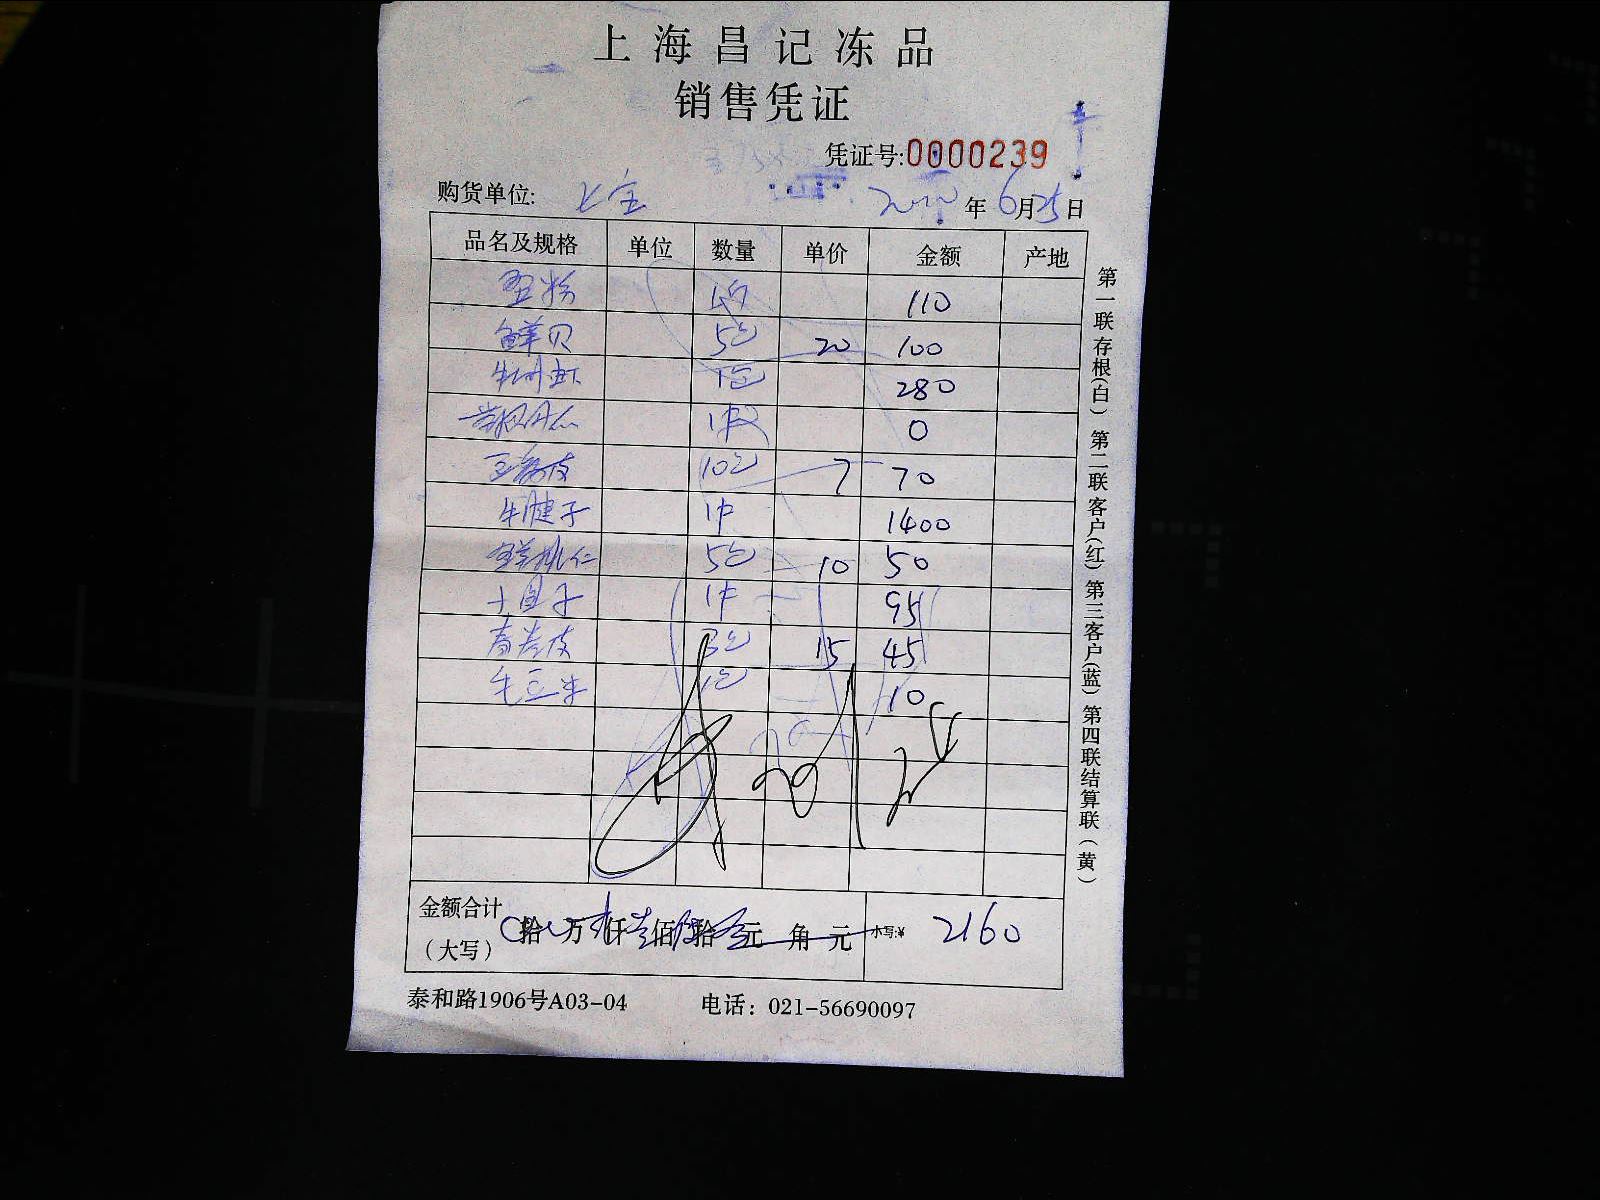 上海昌记冻品
销售凭证
凭证号:0000239
购货单位: 上宝 年 6月25日
品名及规格 单位 数量 单价 金额 产地
110
鲜贝 5包 20 100
1包 280
0
10包 7 70
牛腱子 1件 1400
鲜桃仁 5包 10 50
1件 95
春卷皮 3包 15 45
毛豆米 1包 10
金额合计
(大写) 拾 万 仟 佰 拾 元 角 元 小写:¥ 2160
泰和路1906号A03-04 电话: 021-56690097
第一联存根(白) 第二联客户(红) 第三客户(蓝) 第四联结算联(黄)